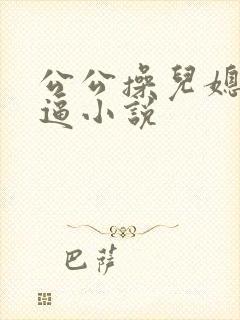 公公操兒媳
逼小說
巴薩